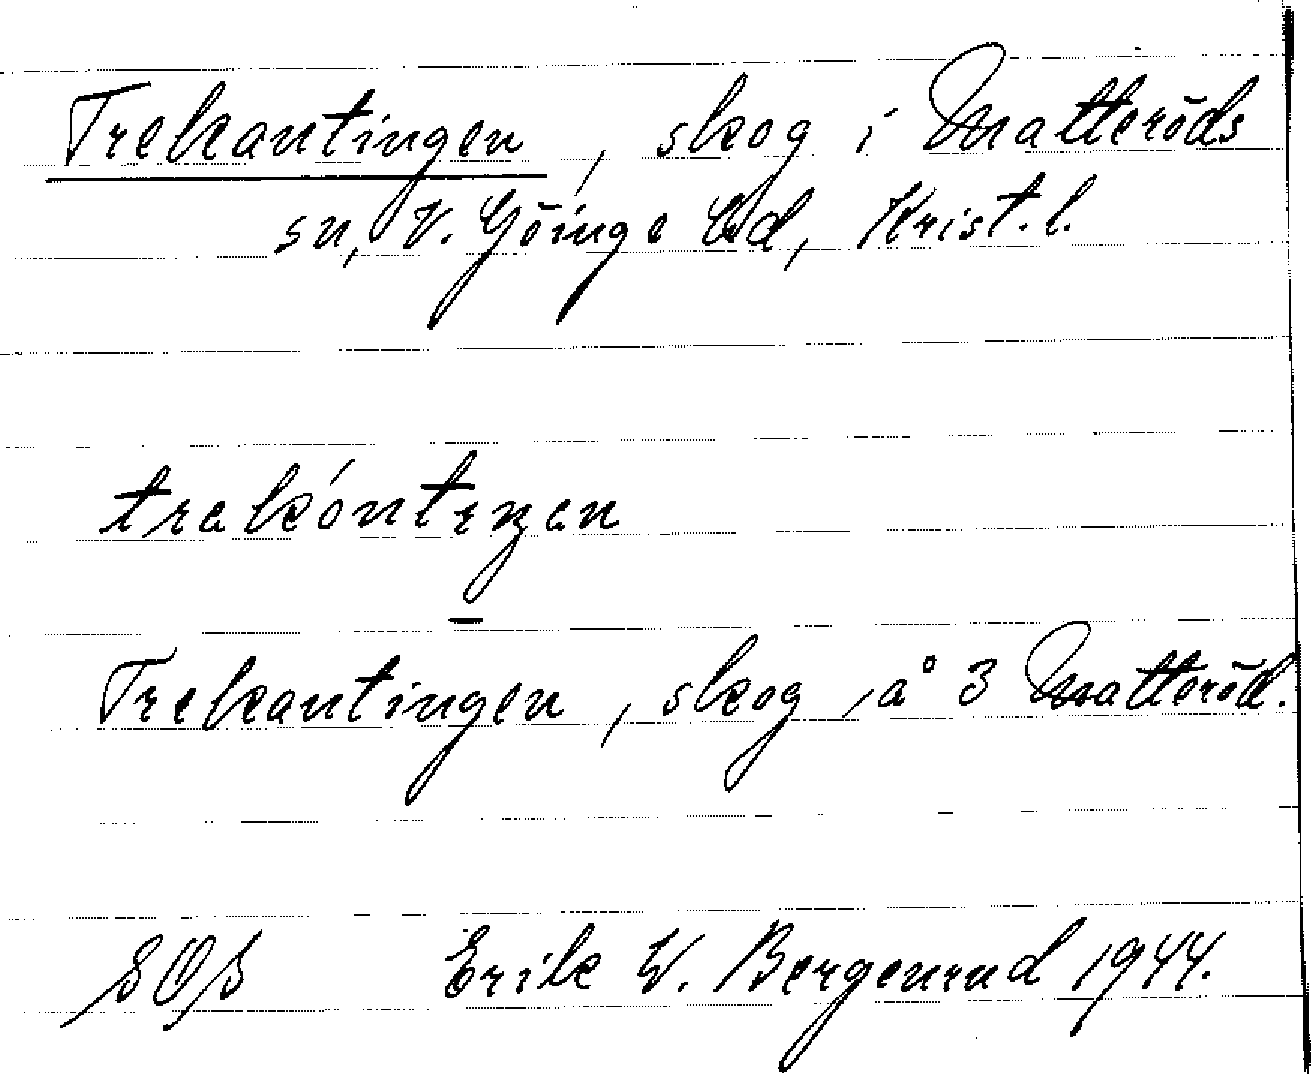 Trekantingen, skog i Matteröds
sn, V. Göinge hd, Krist. l.
trekántıŋen
Trekantingen, skog, å 3 Matteröd.
SOS Erik W. Bergenrud 1944.